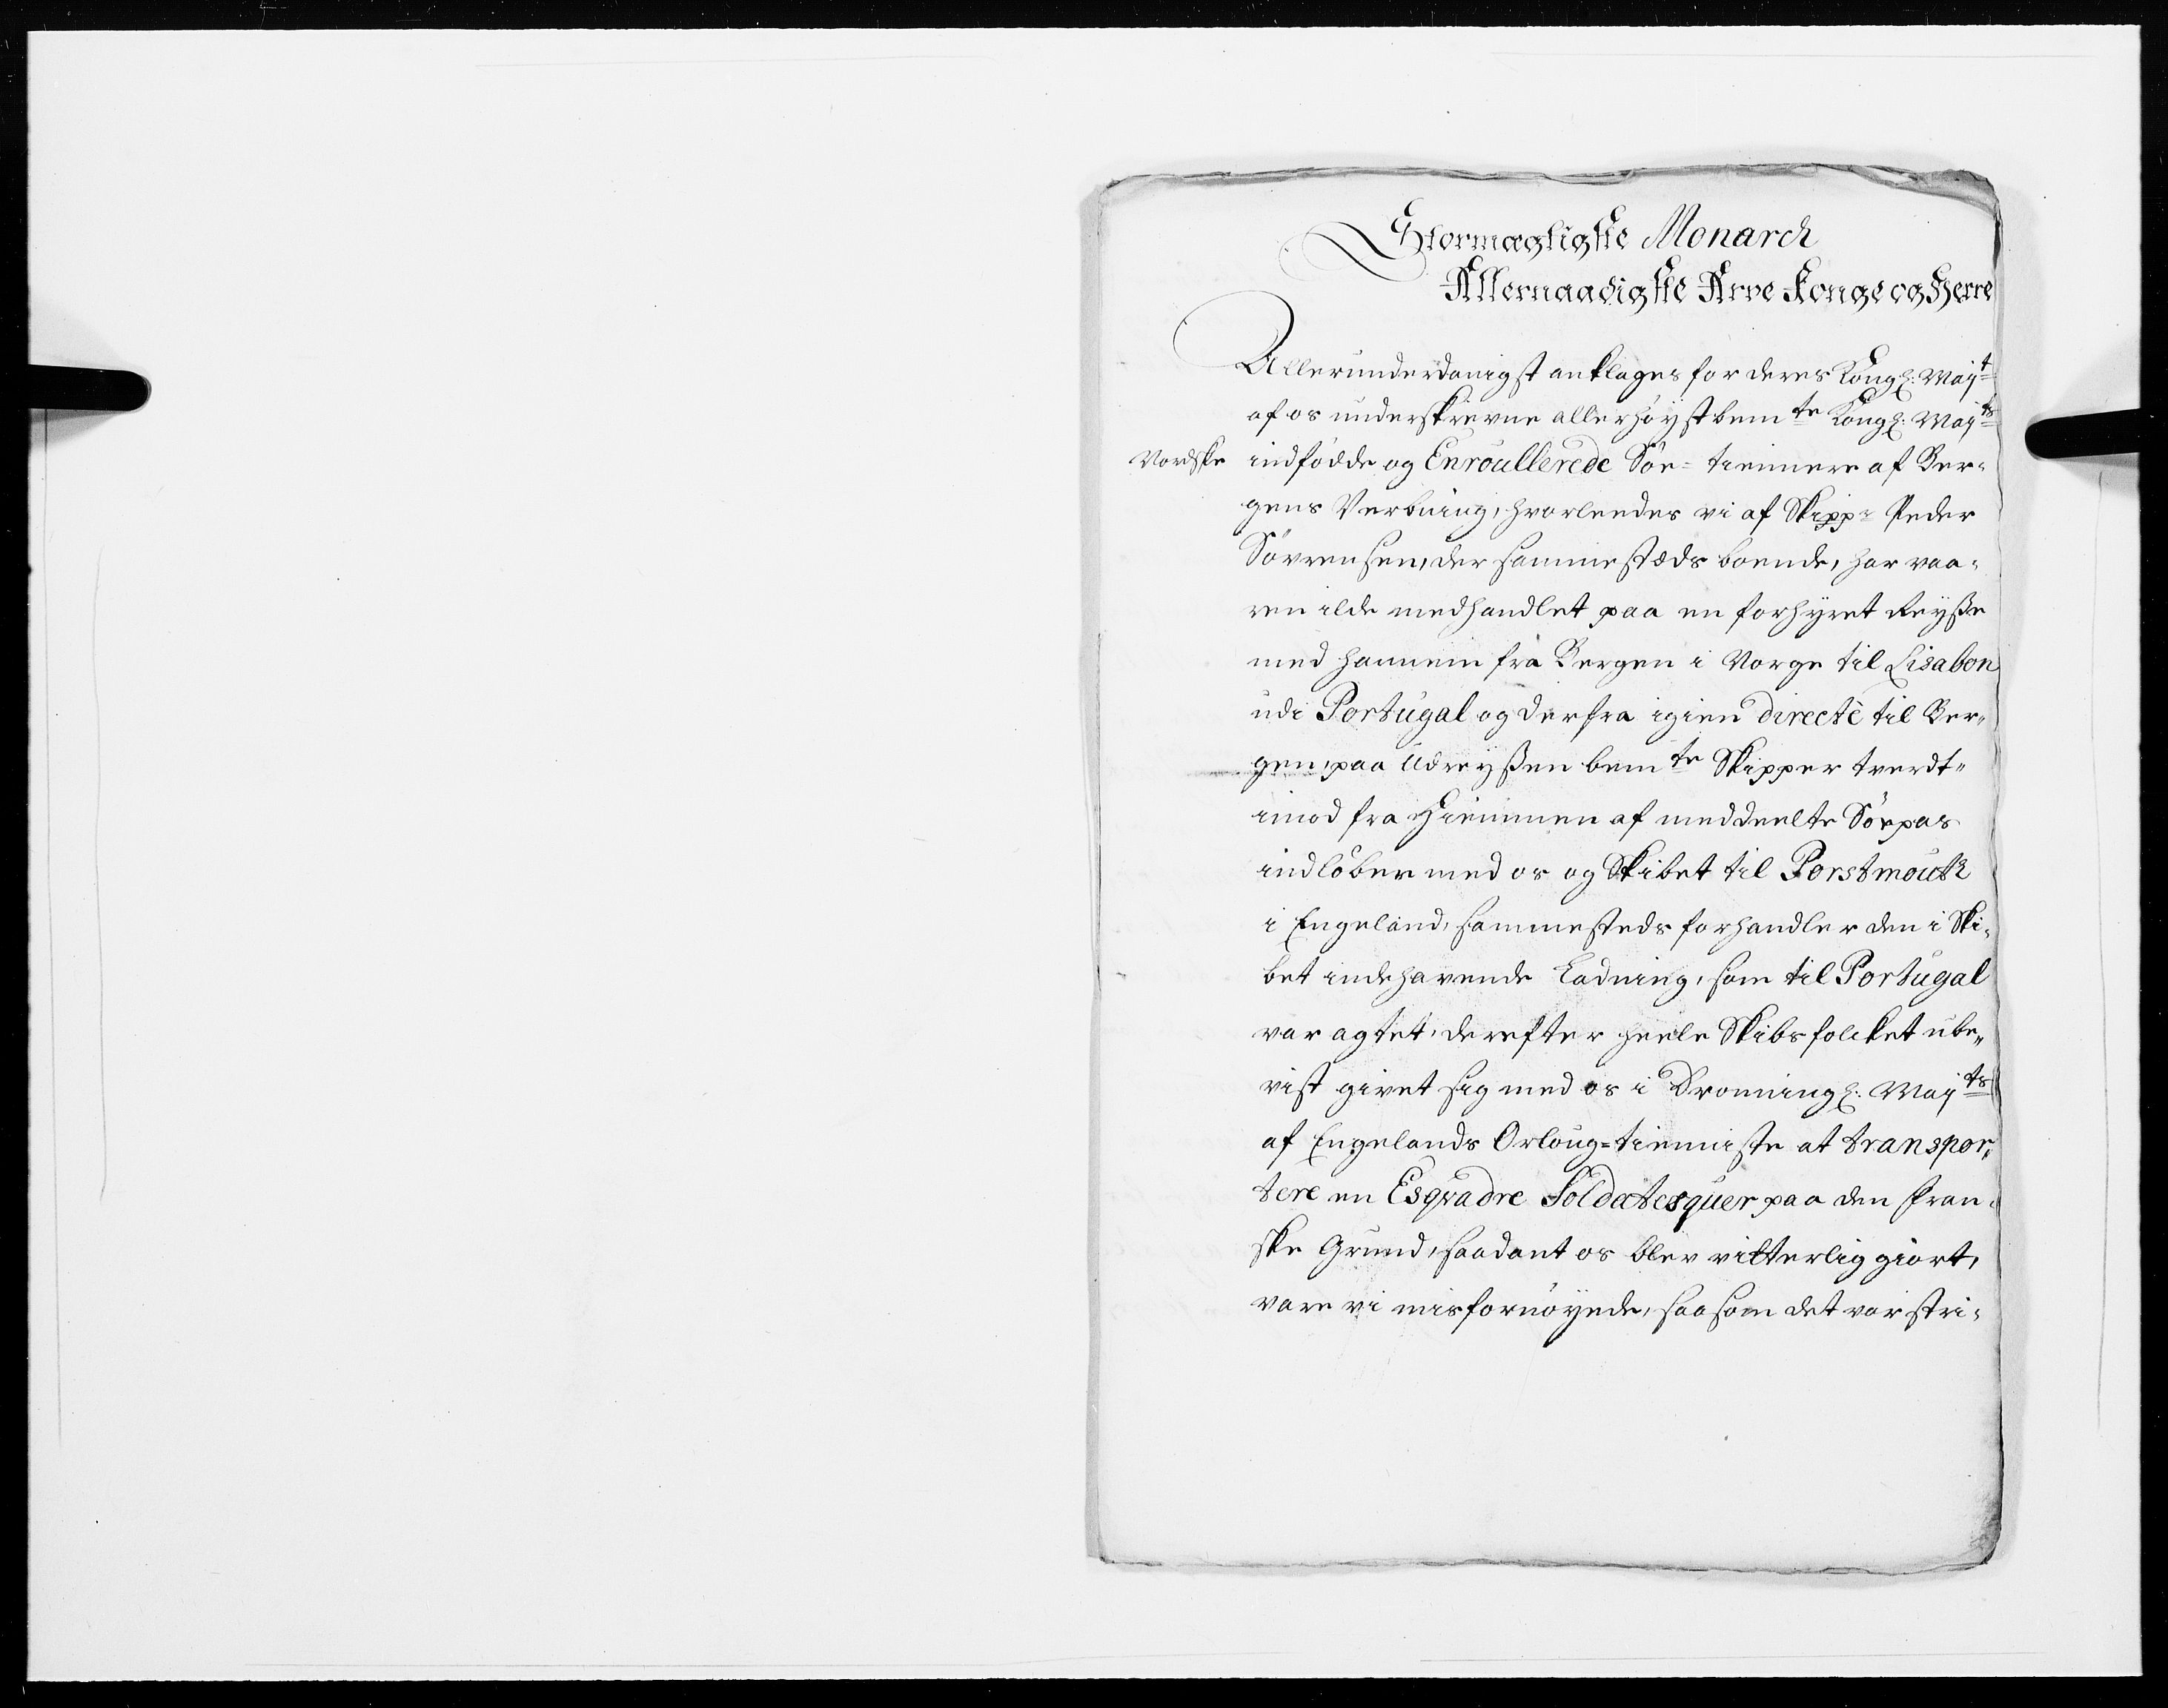 Stormægtigste Monarch
Allernaadigste Arve Konge og Herre
Allerunderdanigst anklages for deres Kongl: Mayt
af os underskrevne allerhøystbemte Kongl: Mayts
Nordske indfødde og Enroullerede Søe-tiennere af Ber-
gens Verbning, hvorleedes vi af Skipp: Peder
Søvrensen, der sammestæds boende, har vaa-
ren ilde medhandlet paa en forhyret Reysse
med hannem fra Bergen i Norge til Lisabon
udi Portugal og derfra igien directè til Ber-
gen, paa Udreyssen bemte Skipper tverdt-
imod fra Hiemmen af meddeelte Søepas
indløber med os og Skibet til Porstmouth
i Engeland, sammesteds forhandler den i Ski-
bet indehavende Ladning, som til Portugal
var agtet, derefter heele Skibsfolcket ube-
vist givet sig med os i Dronningl: Mayts
af Engelands Orloug-tienniste at transpor-
tere en Esqvadre Soldatesquer paa den Fran-
ske Grund, saadant os blev vitterlig giort,
vare vi misfornøyede, saasom det var stri-